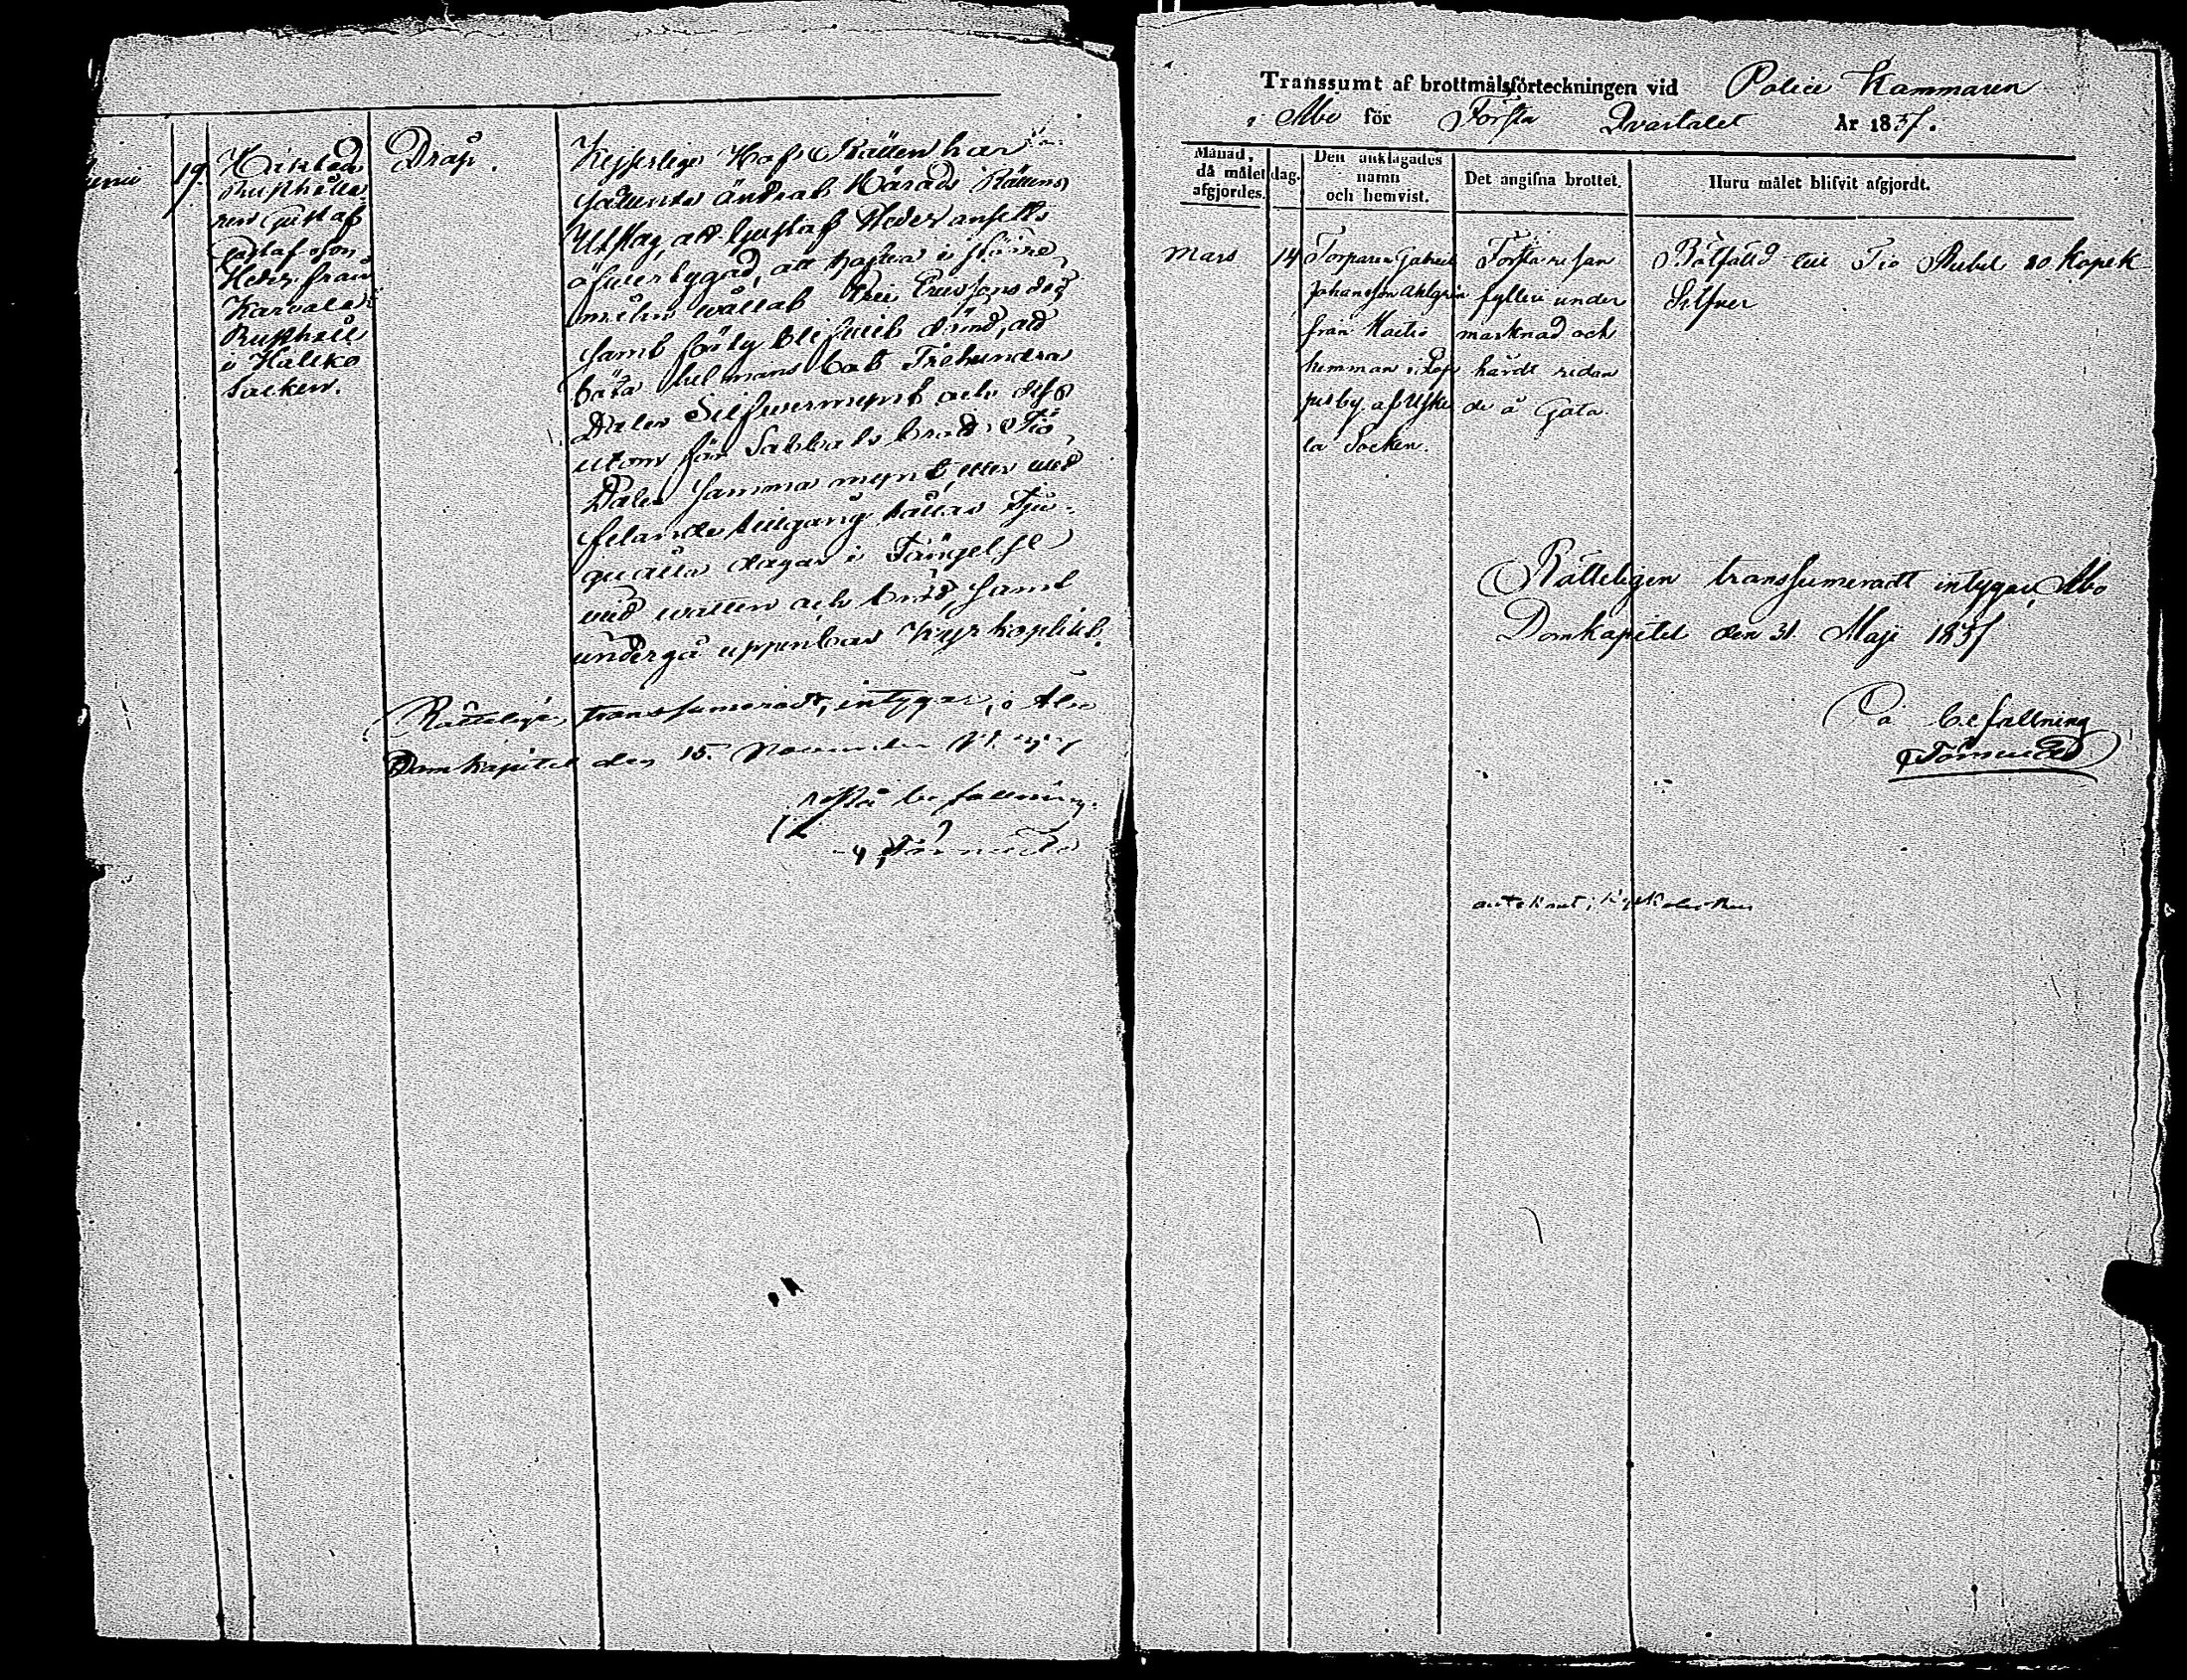 19. Häktad
Rusthålla
ren Gustaf
Gustafsson
Heder från
Karvala
Rusthåll
i Haliko
Socken.
Dråp.
Kejserliga Hof Rätten har
sålunda ändrat Härads Rättens
Utslag, att Gustaf Heder ansetts
öfvertygad, att hafva i större
målen wållat Ericssons död
samt förty blifvit dömd, att
böta full mans bot Etthundra
Daler Silfvermynt och dess
utom för Sabbats brott Tio
Daler samma mynt, eller vid
felande tillgång hållas Tju-
guåtta dagar i Fängelse
vid watten och bröd, samt
undergå uppenbar Kyrkoplikt.
Rätteligen transsumeradt, intygar, i Åbo
Domkapitel den 15. November
På befallning.
Transsumt af brottmålsförteckningen vid Police Kammaren
i Åbo för Första Qvartalet År 1837.
Månad,
då målet
afgjordes.
dag.
Den anklagades
namn
och hemvist.
Det angifna brottet.
Huru målet blifvit afgjordt.
Mars 14 Torparen Gabriel
Johansson Ahlgrén
från Kaitis
hemman i
by af Uske
la Socken.
Första resan
fylleri under
marknad och
hårdt ridan
de å Gata.
Bötfälld till Tio Rubel 80 Kopek
Silfver
Rätteligen transsumeradt intygar, Åbo
Domkapitel den 31. Maji 1837
På befallning